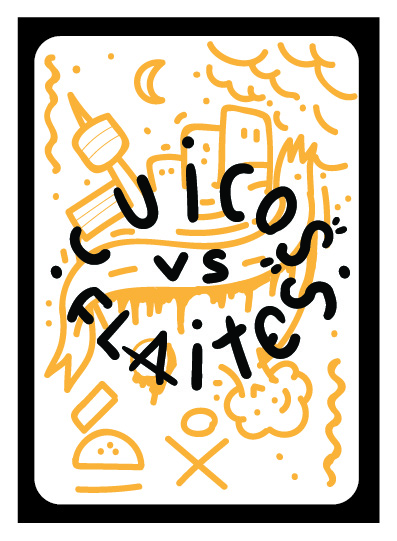 CUiCOS
vs
FLAitES